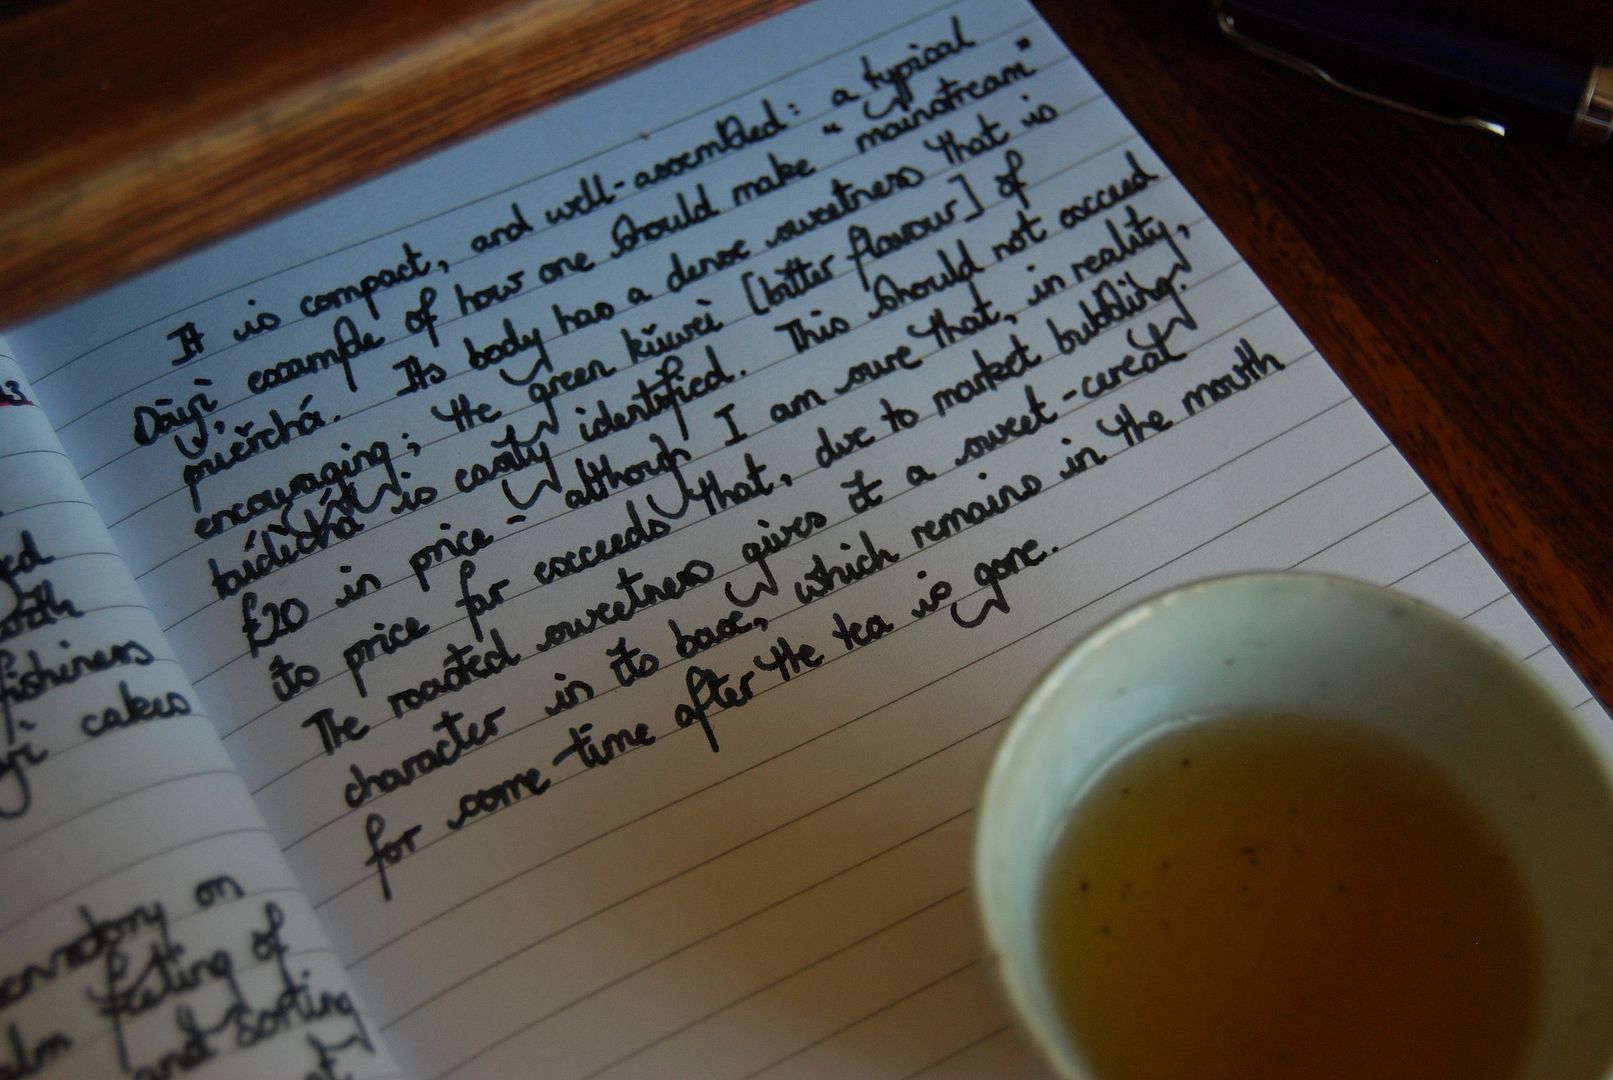 It is compact, and well-assembled: a typical
Dàyì example of how one should make "mainstream"
puěrchá. Its body has a dense sweetness that is
encouraging; the green kǔwèi [bitter flavour] of
táidìchá is easily identified. This should not exceed
£20 in price - although I am sure that, in reality,
its price far exceeds that, due to market bubbling.
The roasted sweetness gives it a sweet-cereal
character in its base, which remains in the mouth
for some time after the tea is gone.
fishiness
cakes
on
feeling of
and sorting